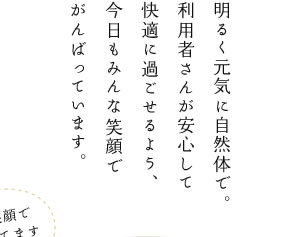 明るく元気に自然体で。
利用者さんが安心して
快適に過ごせるよう、
今日もみんな笑顔で
がんばっています。
顔で
てます